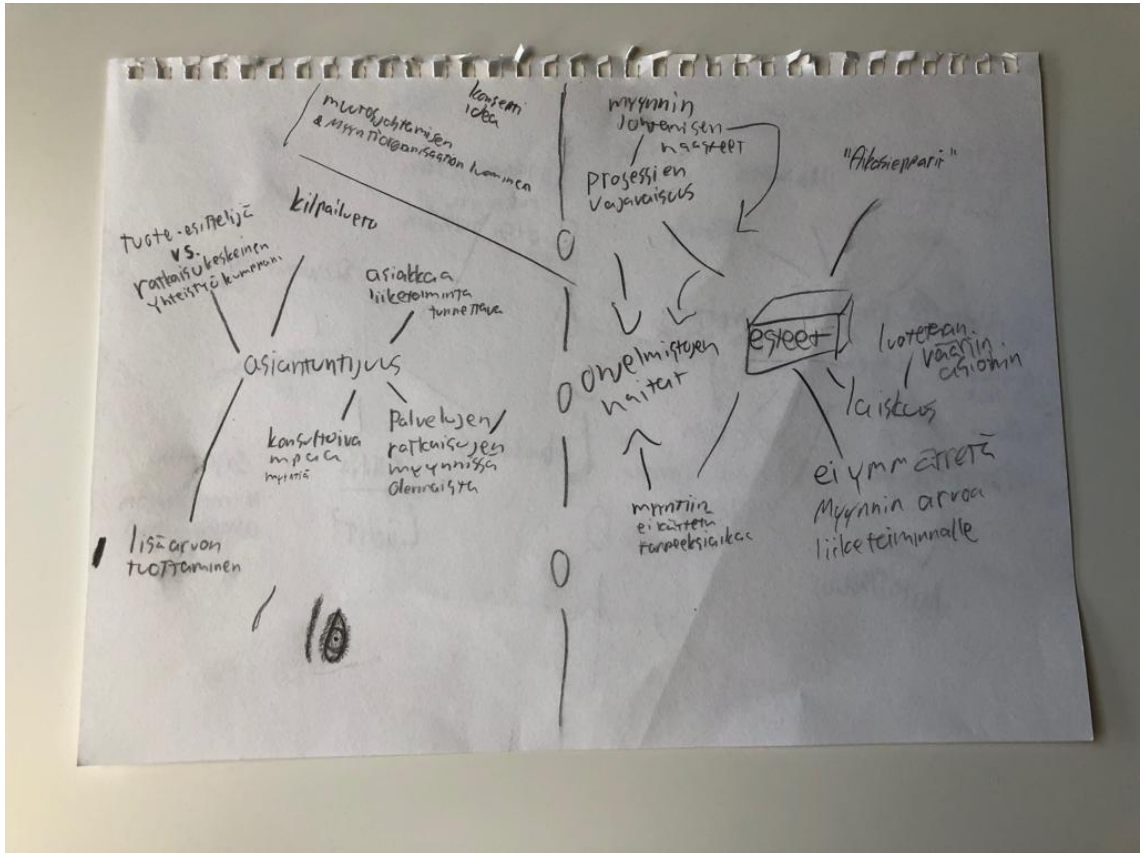 konsepti
idea
muutosjohtamisen
& Myyntiorganisaation luominen
kilpailuetu
tuote-esittelijä
vs.
ratkaisukeskeinen
yhteistyökumppani
asiakkaa
liiketoiminta
tunnettava
asiantuntijuus
konsultoiva
myyntiä
Palvelujen/
ratkaisujen
myynnissä
olennaista
lisäarvon
tuottaminen
myynnin
johtamisen
haasteet
prosessien
vajavaisuus
"Aikasiepparit"
esteet
onnelmistujen
haitat
luotetaan
vääriin
asioihin
laiskuus
ei ymmärretä
Myynnin arvoa
liiketoiminnalle
myyntiin
ei käytetä
tarpeeksi aikaa